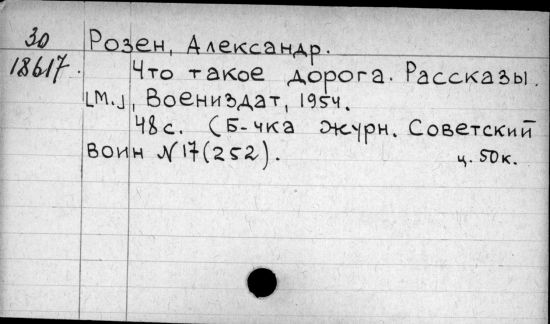 30
18617.
Розен, Александр.
Что такое дорога. Рассказы.
[М.], Воениздат, 1954.
48с. (Б-чка журн. Советский
воин N17(252).
ц. 50к.